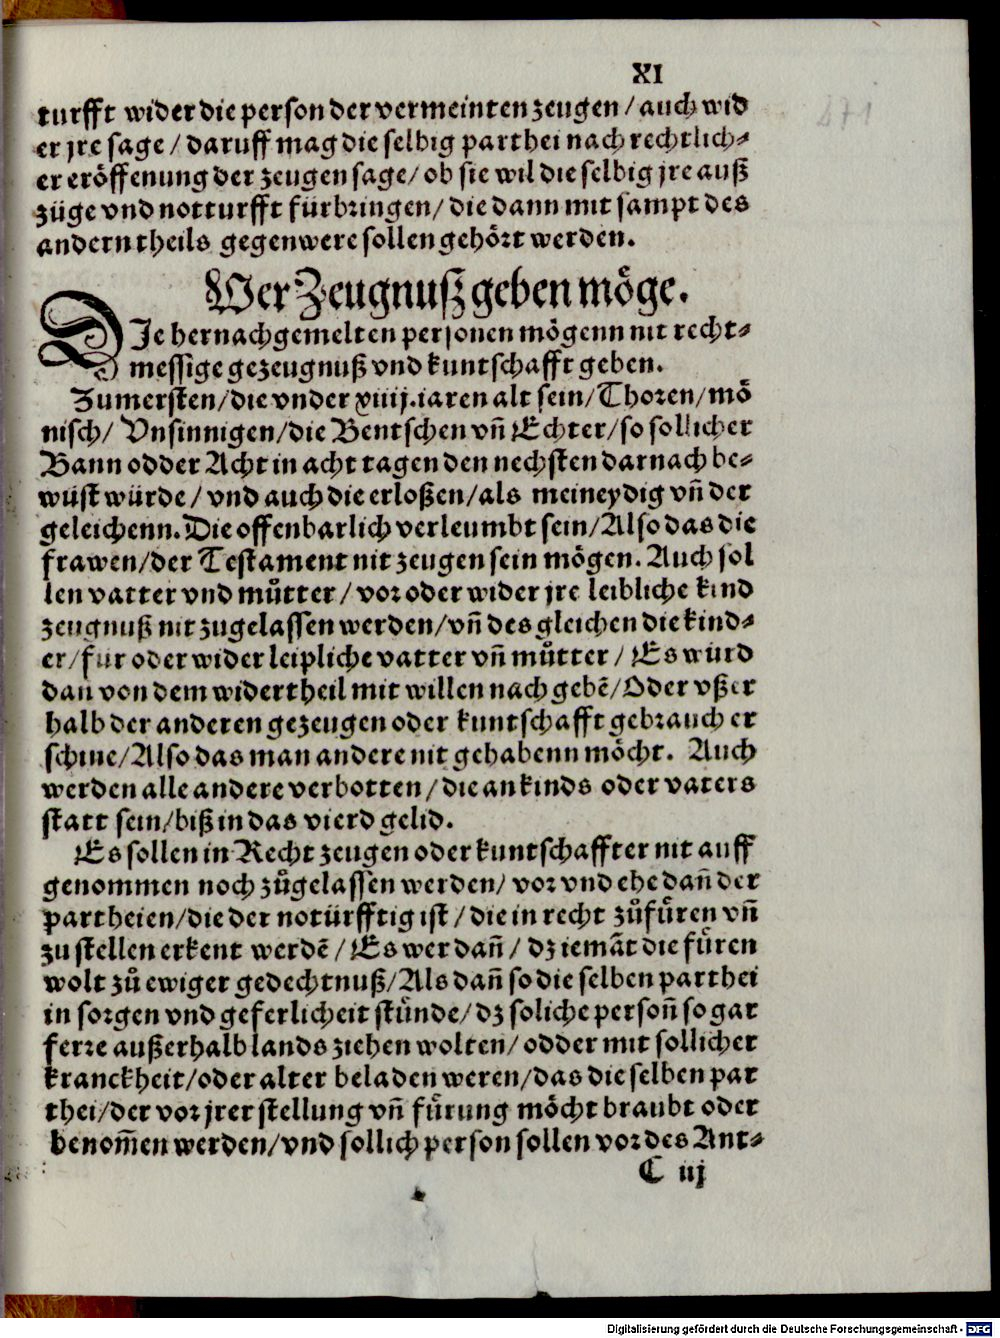 XI
turfft wider die person der vermeinten zeugen / auch wid
er jre sage / daruff mag die selbig parthei nach rechtlich-
er eröffenung der zeugen sage / ob sie wil die selbig jre auß
züge vnd notturfft fürbringen / die dann mit sampt des
andern theils gegenwere sollen gehört werden.
Wer Zeugnuß geben möge.
DJe hernachgemelten personen mögenn nit recht-
messige gezeugnuß vnd kuntschafft geben.
Zumersten / die vnder xiiij. iaren alt sein / Thoren / mö
nisch / Vnsinnigen / die Bentschen vñ Echter / so sollicher
Bann odder Acht in acht tagen den nechsten darnach be-
wüst würde / vnd auch die erloßen / als meineydig vñ der
geleichenn. Die offenbarlich verleumbt sein / Also das die
frawen / der Testament nit zeugen sein mögen. Auch sol
len vatter vnd můtter / vor oder wider jre leibliche kind
zeugnuß nit zugelassen werden / vñ des gleichen die kind-
er / für oder wider leipliche vatter vñ můtter / Es würd
dañ von dem widertheil mit willen nach gebẽ / Oder vßer
halb der anderen gezeugen oder kuntschafft gebrauch er
schine / Also das man andere nit gehabenn möcht. Auch
werden alle andere verbotten / die an kinds oder vaters
statt sein / biß in das vierd gelid.
Es sollen in Recht zeugen oder kuntschaffter nit auff
genommen noch zůgelassen werden / vor vnd ehe dañ der
partheien / die der notürfftig ist / die in recht zůfůren vñ
zu stellen erkent werdẽ / Es wer dañ / dz iemãt die fůren
wolt zů ewiger gedechtnuß / Als dañ so die selben parthei
in sorgen vnd geferlicheit stünde / dz soliche persoñ so gar
ferre außerhalb lands ziehen wolten / odder mit sollicher
kranckheit / oder alter beladen weren / das die selben par
thei / der vor jrer stellung vñ fůrung möcht braubt oder
benom̃en werden / vnd sollich person sollen vor des Ant-
C iij
Digitalisierung gefördert durch die Deutsche Forschungsgemeinschaft - DFG